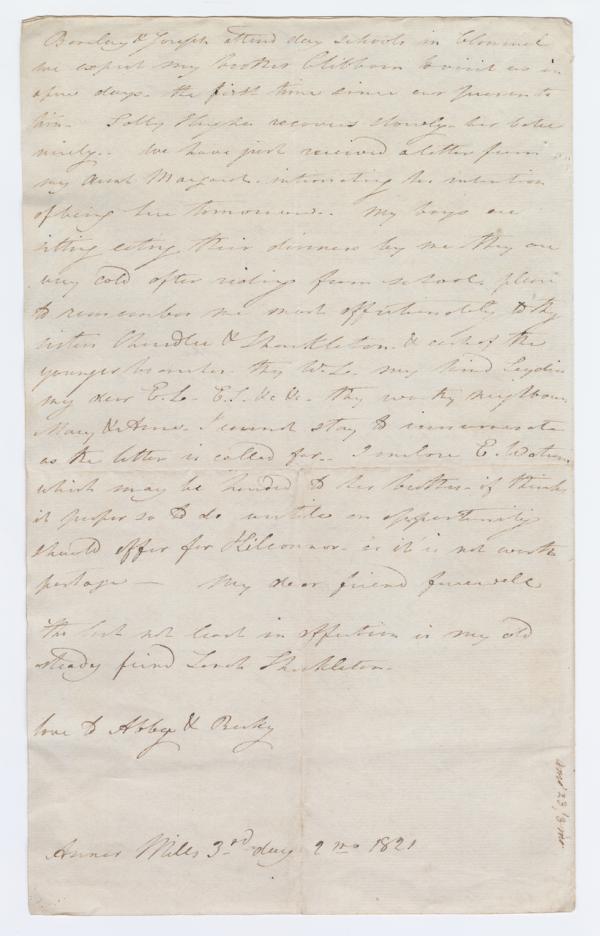 Barclay & Joseph attend day schools in Clonmel
we expect my brother Clibborn to visit us in
a few days. the first time since our
him. Sally Hughes recovers slowly. her
nicely.. We have just received a letter from
my Aunt Margaret. intimating her intention
of being here tomorrow.. My boys are
sitting eating their dinners by me they are
very cold after riding from school. please
to remember me most affectionately to thy
sisters Chandlee & Shackleton. & each of the
younger branches. thy W.L. my kind Lydia
my dear E.L. E.S. &c &c. thy worthy neighbours
Mary & Anne. I cannot stay to innumerate
as the letter is called for. I inclose E. Watson
which may be handed to her brother. if thinks
it proper so to do untile an opportunity
should offer for Kilconnor. as it is not worth
postage — My dear friend farewell
the last not least in affection is my old
steady friend Shackleton.
love to & Becky
Anner Mills 3rd day 2 mo 1821